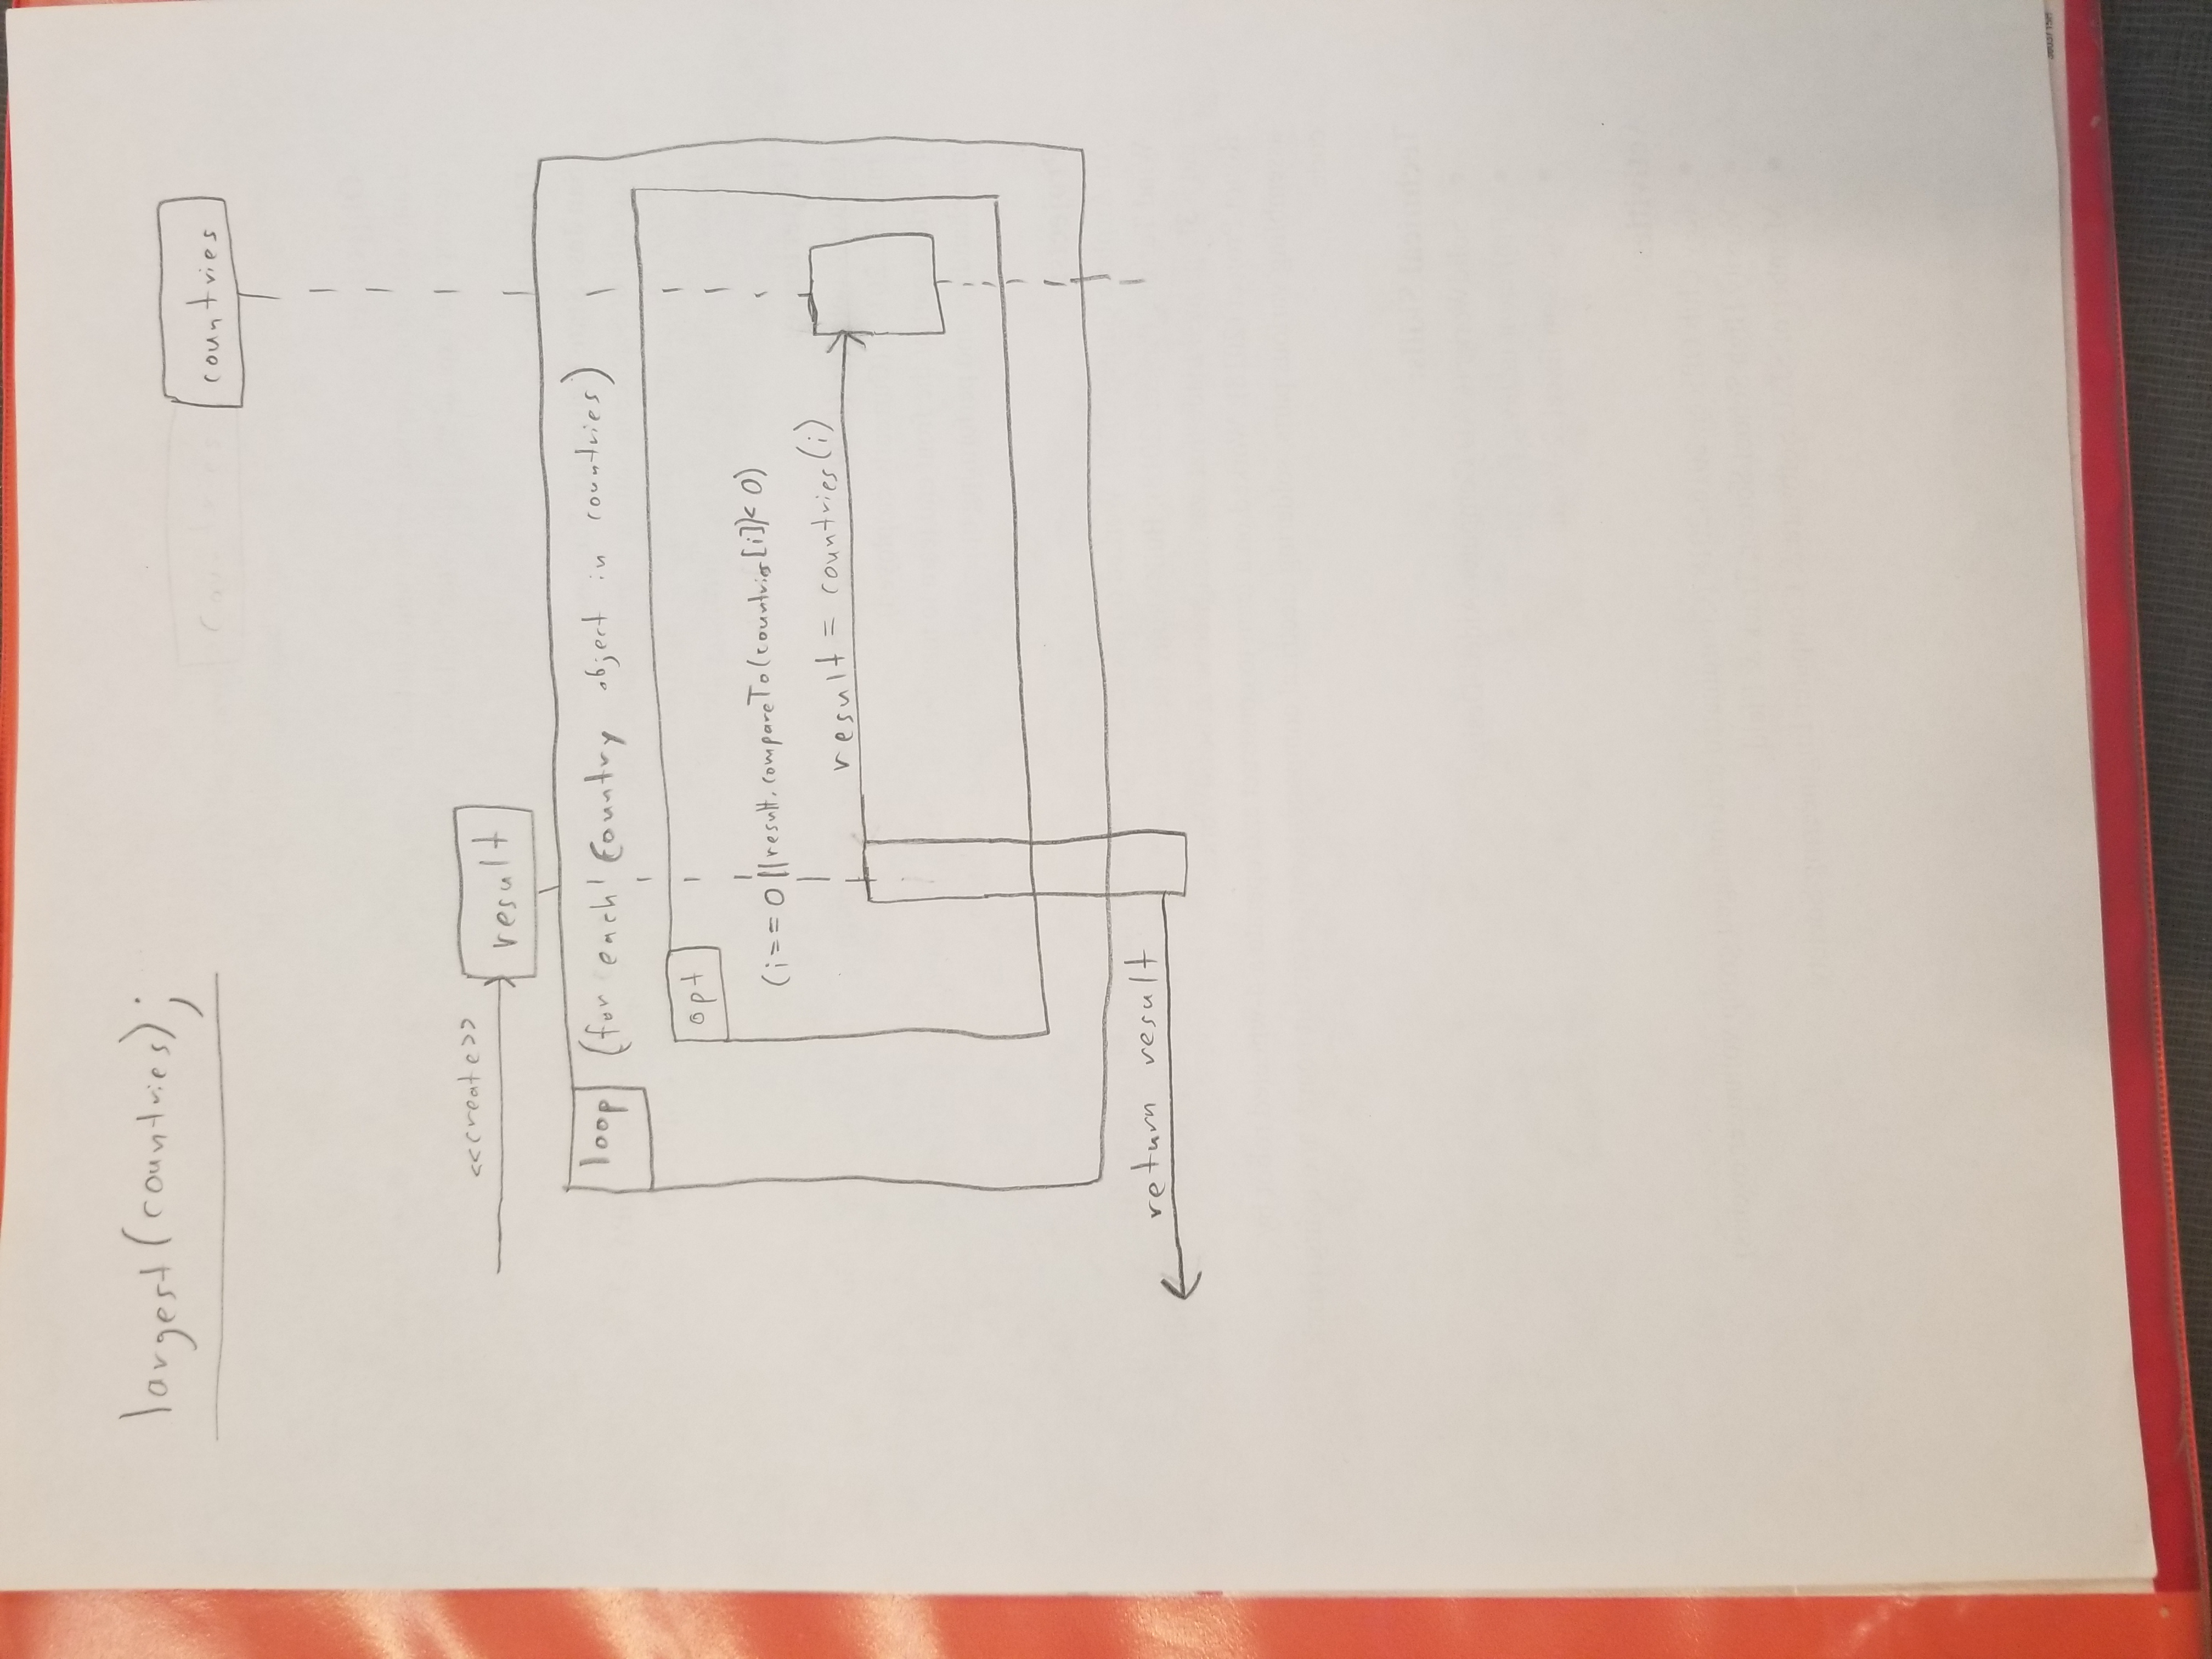 largest(countries);
countries
<<create>>
result
loop (for each Country object in countries)
opt
(i==0||result.compareTo(countries[i])<0)
result = countries(i)
return result